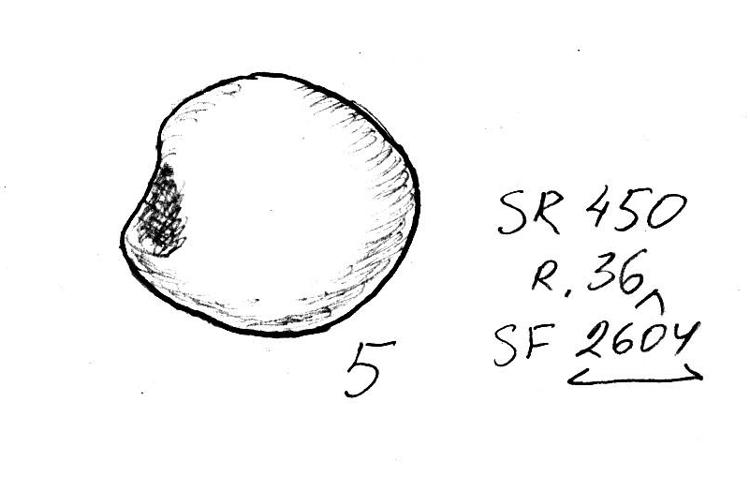 5
SR 450
R. 36
SF 2604